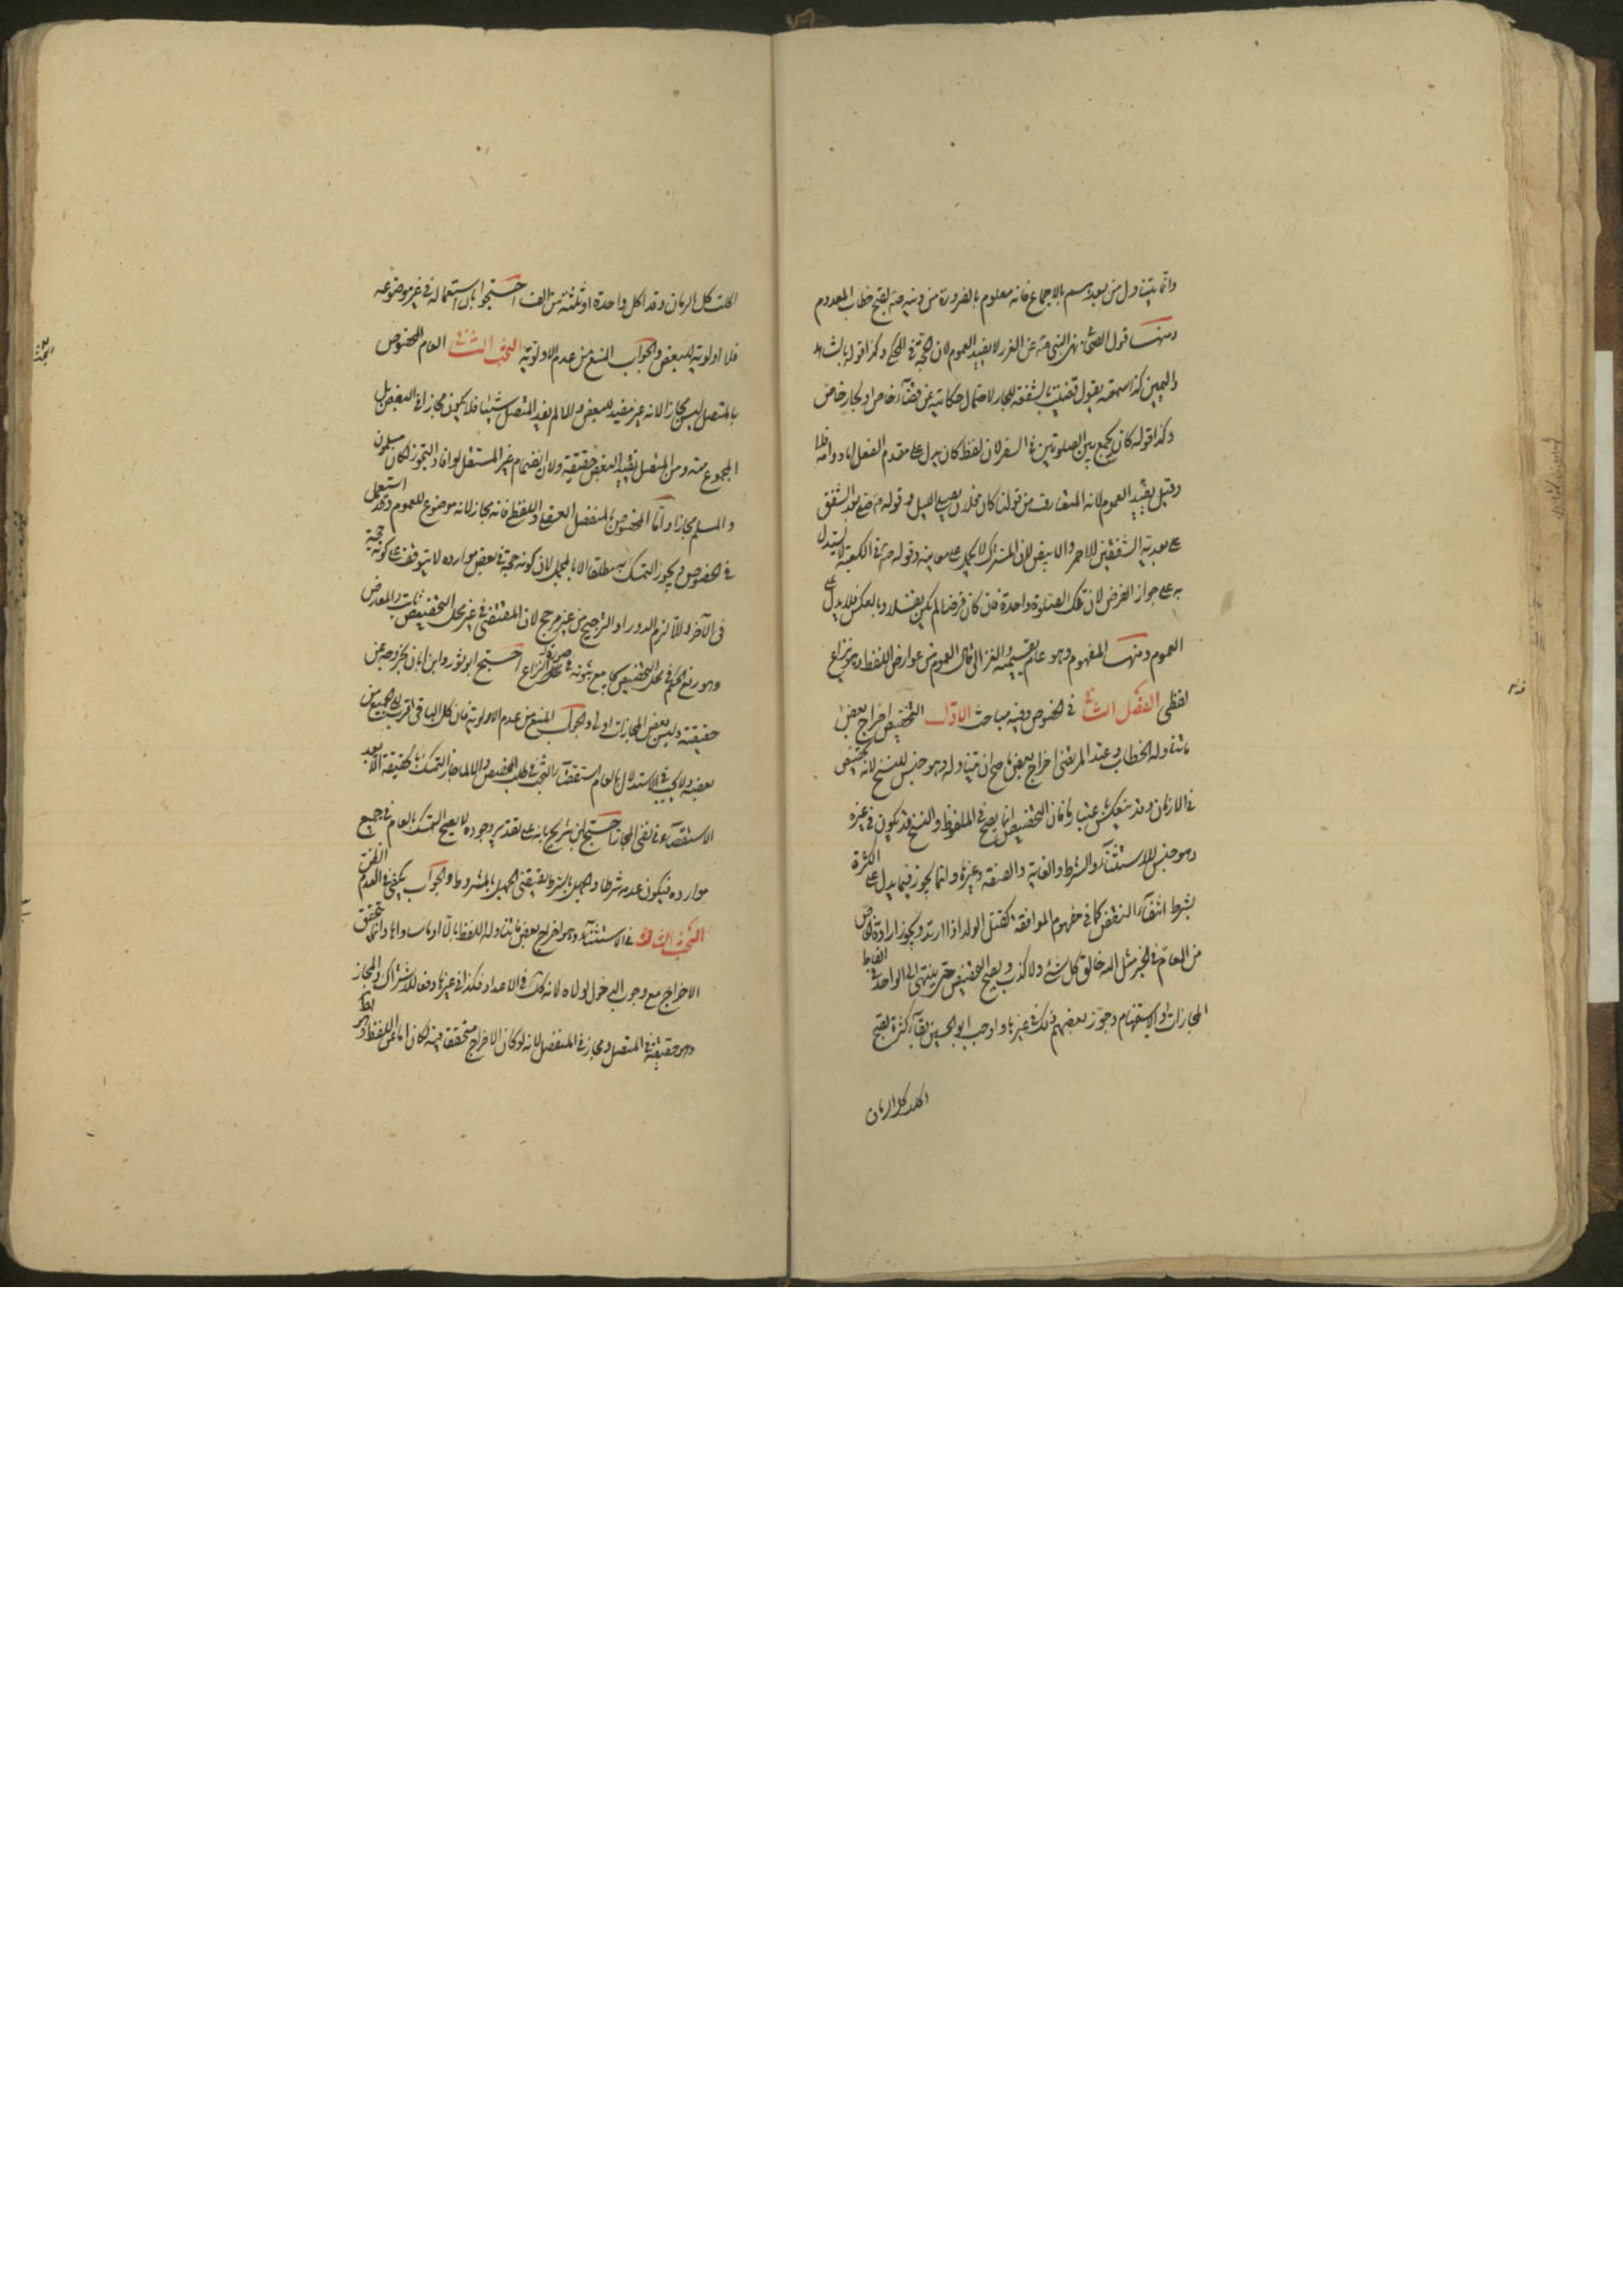 وانما يتناول من بعدهم بالاجماع فانه معلوم بالضرورة من دينه صلعم لقبح خطاب المعدوم
ومنها قول الصحابي نهى النبي صلعم عن الغرر لا يفيد العموم لان الحجة في المحكي وكذا قوله بالشاهد
واليمين كذا سمعته يقول قضيت بالشفعة للجار لاحتمال حكايته عن قضاء خاص او لجار خاص
وكذا قوله كان يجمع بين الصلوتين في السفر لان لفظ كان يدل على تقدم الفعل اما دوامه فلا
وقيل يفيد العموم لانه المتعارف من قولنا كان فلان يصلي الليل وقوله صلى بعد الشفق
على بعدية الشفقين الاحمر والابيض لان المشترك لا يحمل على معانيه وقوله صلى في الكعبة لا يستدل
به على جواز الفرض لان تلك الصلوة واحدة فان كان فرضا لم يكن نفلا وبالعكس فلا يدل على
العموم ومنها المفهوم وهو عام بقسيميه والغزالي قال العموم من عوارض اللفظ وهو نزاع
لفظي الفصل الثاني في الخصوص وفيه مباحث الاول التخصيص اخراج بعض
ما تناوله الخطاب وعند المرتضى اخراج بعض ما صح ان يتناوله وهو جنس للنسخ لانه تخصيص
في الازمان وقد ينعكس باعتبار فان التخصيص انما يصح في الملفوظ والنسخ قد يكون في غيره
وهو جنس للاستثناء والشرط والغاية والصفة وغيرها وانما يجوز فيما يدل على الكثرة
بشرط انتفاء النقض كما في مفهوم الموافقة كقتل الوالد اذا ارتد ويجوز ارادة الخاص
من العام في الخبر مثل الله خالق كل شئ ولا كذب ويصح التخصيص حتى ينتهي الى الواحد في الفاظ
المجازات والاستفهام وجوز بعضهم ذلك في غيرها واوجب ابو الحسين بقاء كثرة لقبح
اكلت كل الرمان
اكلت كل الرمان وقد اكل واحدة او ثلثة من الف احتجوا بان استعماله في غير موضوعه
فلا اولوية للبعض والجواب المنع من عدم الاولوية البحث الثاني العام المخصوص
بالمتصل ليس مجازا لانه غير مفيد للبعض والا لم يفد المتصل شيئا فلا يكون مجازا في البعض بل
المجموع منه ومن المتصل يفيد البعض حقيقة ولان انضمام غير المستقل لو افاد التجوز لكان مسلمون
والمسلم مجازا واما المخصوص بالمنفصل العقلي واللفظي فانه مجاز لانه موضوع للعموم وقد استعمل
في الخصوص ويجوز التمسك به مطلقا الا بالمجمل لان كونه حجة في بعض موارده لا يتوقف على كونه حجة
في الآخر والا لزم الدور او الترجيح من غير مرجح لان المقتضي في غير محل التخصيص ثابت والمعارض
وهو رفع الحكم في محل التخصيص يجامع ثبوته في صورة محل النزاع احتج ابو ثور وابن ابان بخروجه عن
حقيقته وليس بعض المجازات اولى والجواب المنع من عدم الاولوية فان كل الباقي اقرب الى الجميع من
بعضه ولا يجب في الاستدلال بالعام استقصاء البحث في طلب المخصص والا لما جاز التمسك بالحقيقة الا بعد
الاستقصاء في نفي المجاز احتج ابن شريح بانه على تقدير وجوده لا يصح التمسك بالعام في جميع
موارده فيكون عدمه شرطا والجهل بالشرط يقتضي الجهل بالمشروط والجواب يكفي في العدم الظن
البحث الثالث في الاستثناء وهو اخراج بعض ما يتناوله اللفظ بالا او ما ساواها وانما يتحقق
الاخراج مع وجوب الدخول لولاه لانه كذلك في الاعداد فكذا في غيرها دفعا للاشتراك والمجاز
وهو حقيقة في المتصل ومجاز في المنفصل لانه لو كان الاخراج متحققا فيه لكان اما عن اللفظ وهو بط